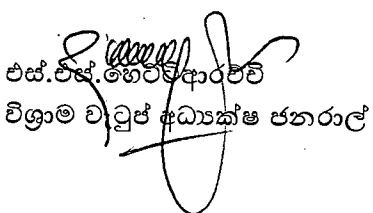 එස්.එස්.හෙට්ටිආරච්චි
විශ්‍රාම වැටුප් අධ්‍යක්ෂ ජනරාල්